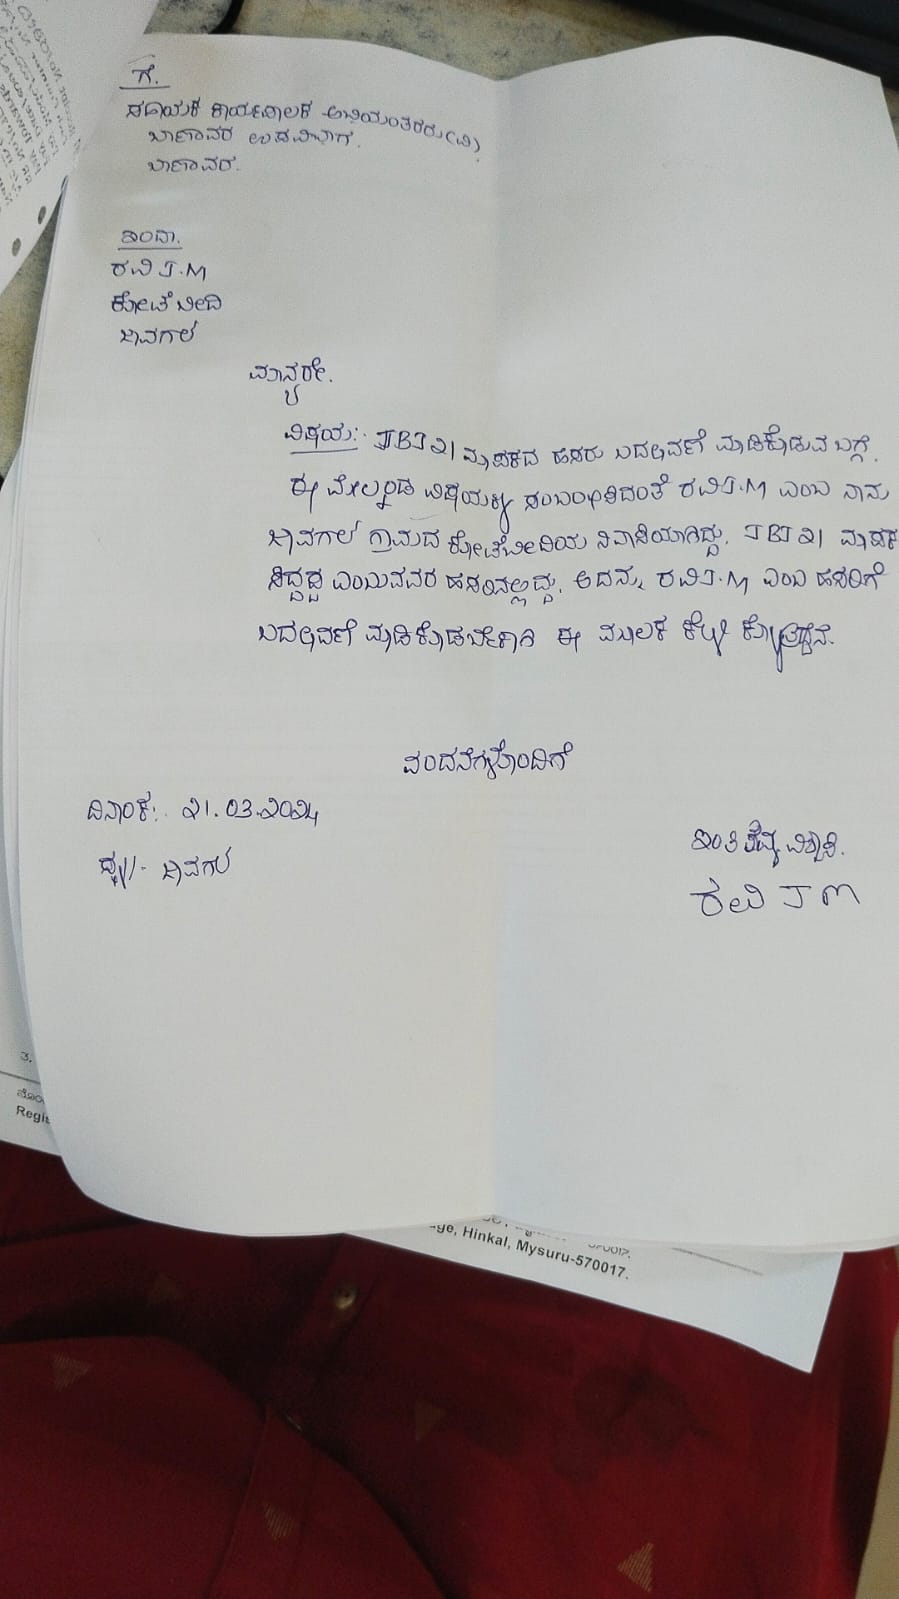 ಗೆ.
ಸಹಾಯಕ ಕಾರ್ಯಪಾಲಕ ಅಭಿಯಂತರರು(ವಿ)
ಬಾಣಾವರ ಉಪವಿಭಾಗ.
ಬಾಣಾವರ.
ಇಂದಾ.
ರವಿ J.M
ಕೋಟೆ ಬೀದಿ
ಜಾವಗಲ್
ಮಾನ್ಯರೇ.
ವಿಷಯ:- JBJ೨1 ಮಾಪಕದ ಹೆಸರು ಬದಲಾವಣೆ ಮಾಡಿಕೊಡುವ ಬಗ್ಗೆ.
ಈ ಮೇಲ್ಕಂಡ ವಿಷಯಕ್ಕೆ ಸಂಬಂಧಿಸಿದಂತೆ ರವಿJ.M ಎಂಬ ನಾನು
ಜಾವಗಲ್ ಗ್ರಾಮದ ಕೋಟೆಬೀದಿಯ ನಿವಾಸಿಯಾಗಿದ್ದು. JBJ೨1 ಮಾಪಕ
ಸಿದ್ದಪ್ಪ ಎಂಬುವವರ ಹೆಸರಿನಲ್ಲಿದ್ದು. ಅದನ್ನು ರವಿJ.M ಎಂಬ ಹೆಸರಿಗೆ
ಬದಲಾವಣೆ ಮಾಡಿಕೊಡಬೇಕಾಗಿ ಈ ಮೂಲಕ ಕೇಳಿ
ವಂದನೆಗಳೊಂದಿಗೆ
ದಿನಾಂಕ:. ೨1.03.೨೦೨೪
ಜಾವಗಲ್
ಇಂತಿ ತಮ್ಮ ವಿಶ್ವಾಸಿ.
ರವಿ J M
Regis
ge, Hinkal, Mysuru-570017.